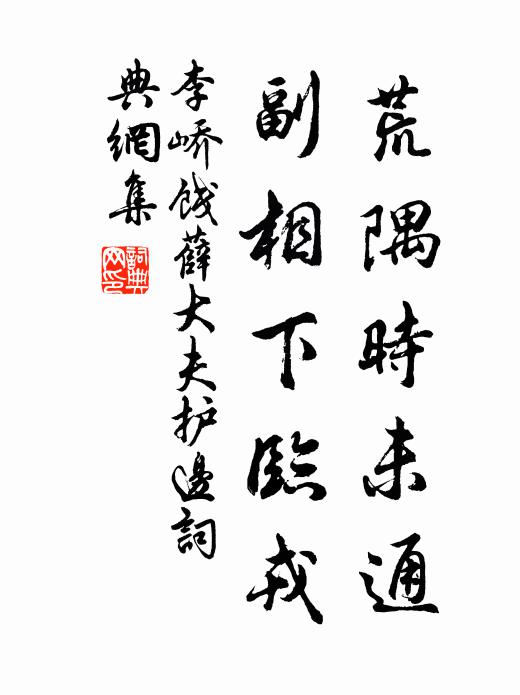 荒隅時未通
副相下臨戎
李嶠餞薛大夫护邊詞
典網集
詞典
网印